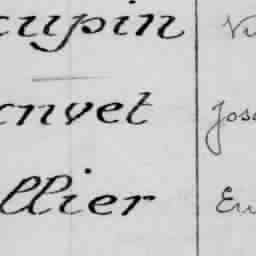 cupin Vi
anvet Jos
llier Eu